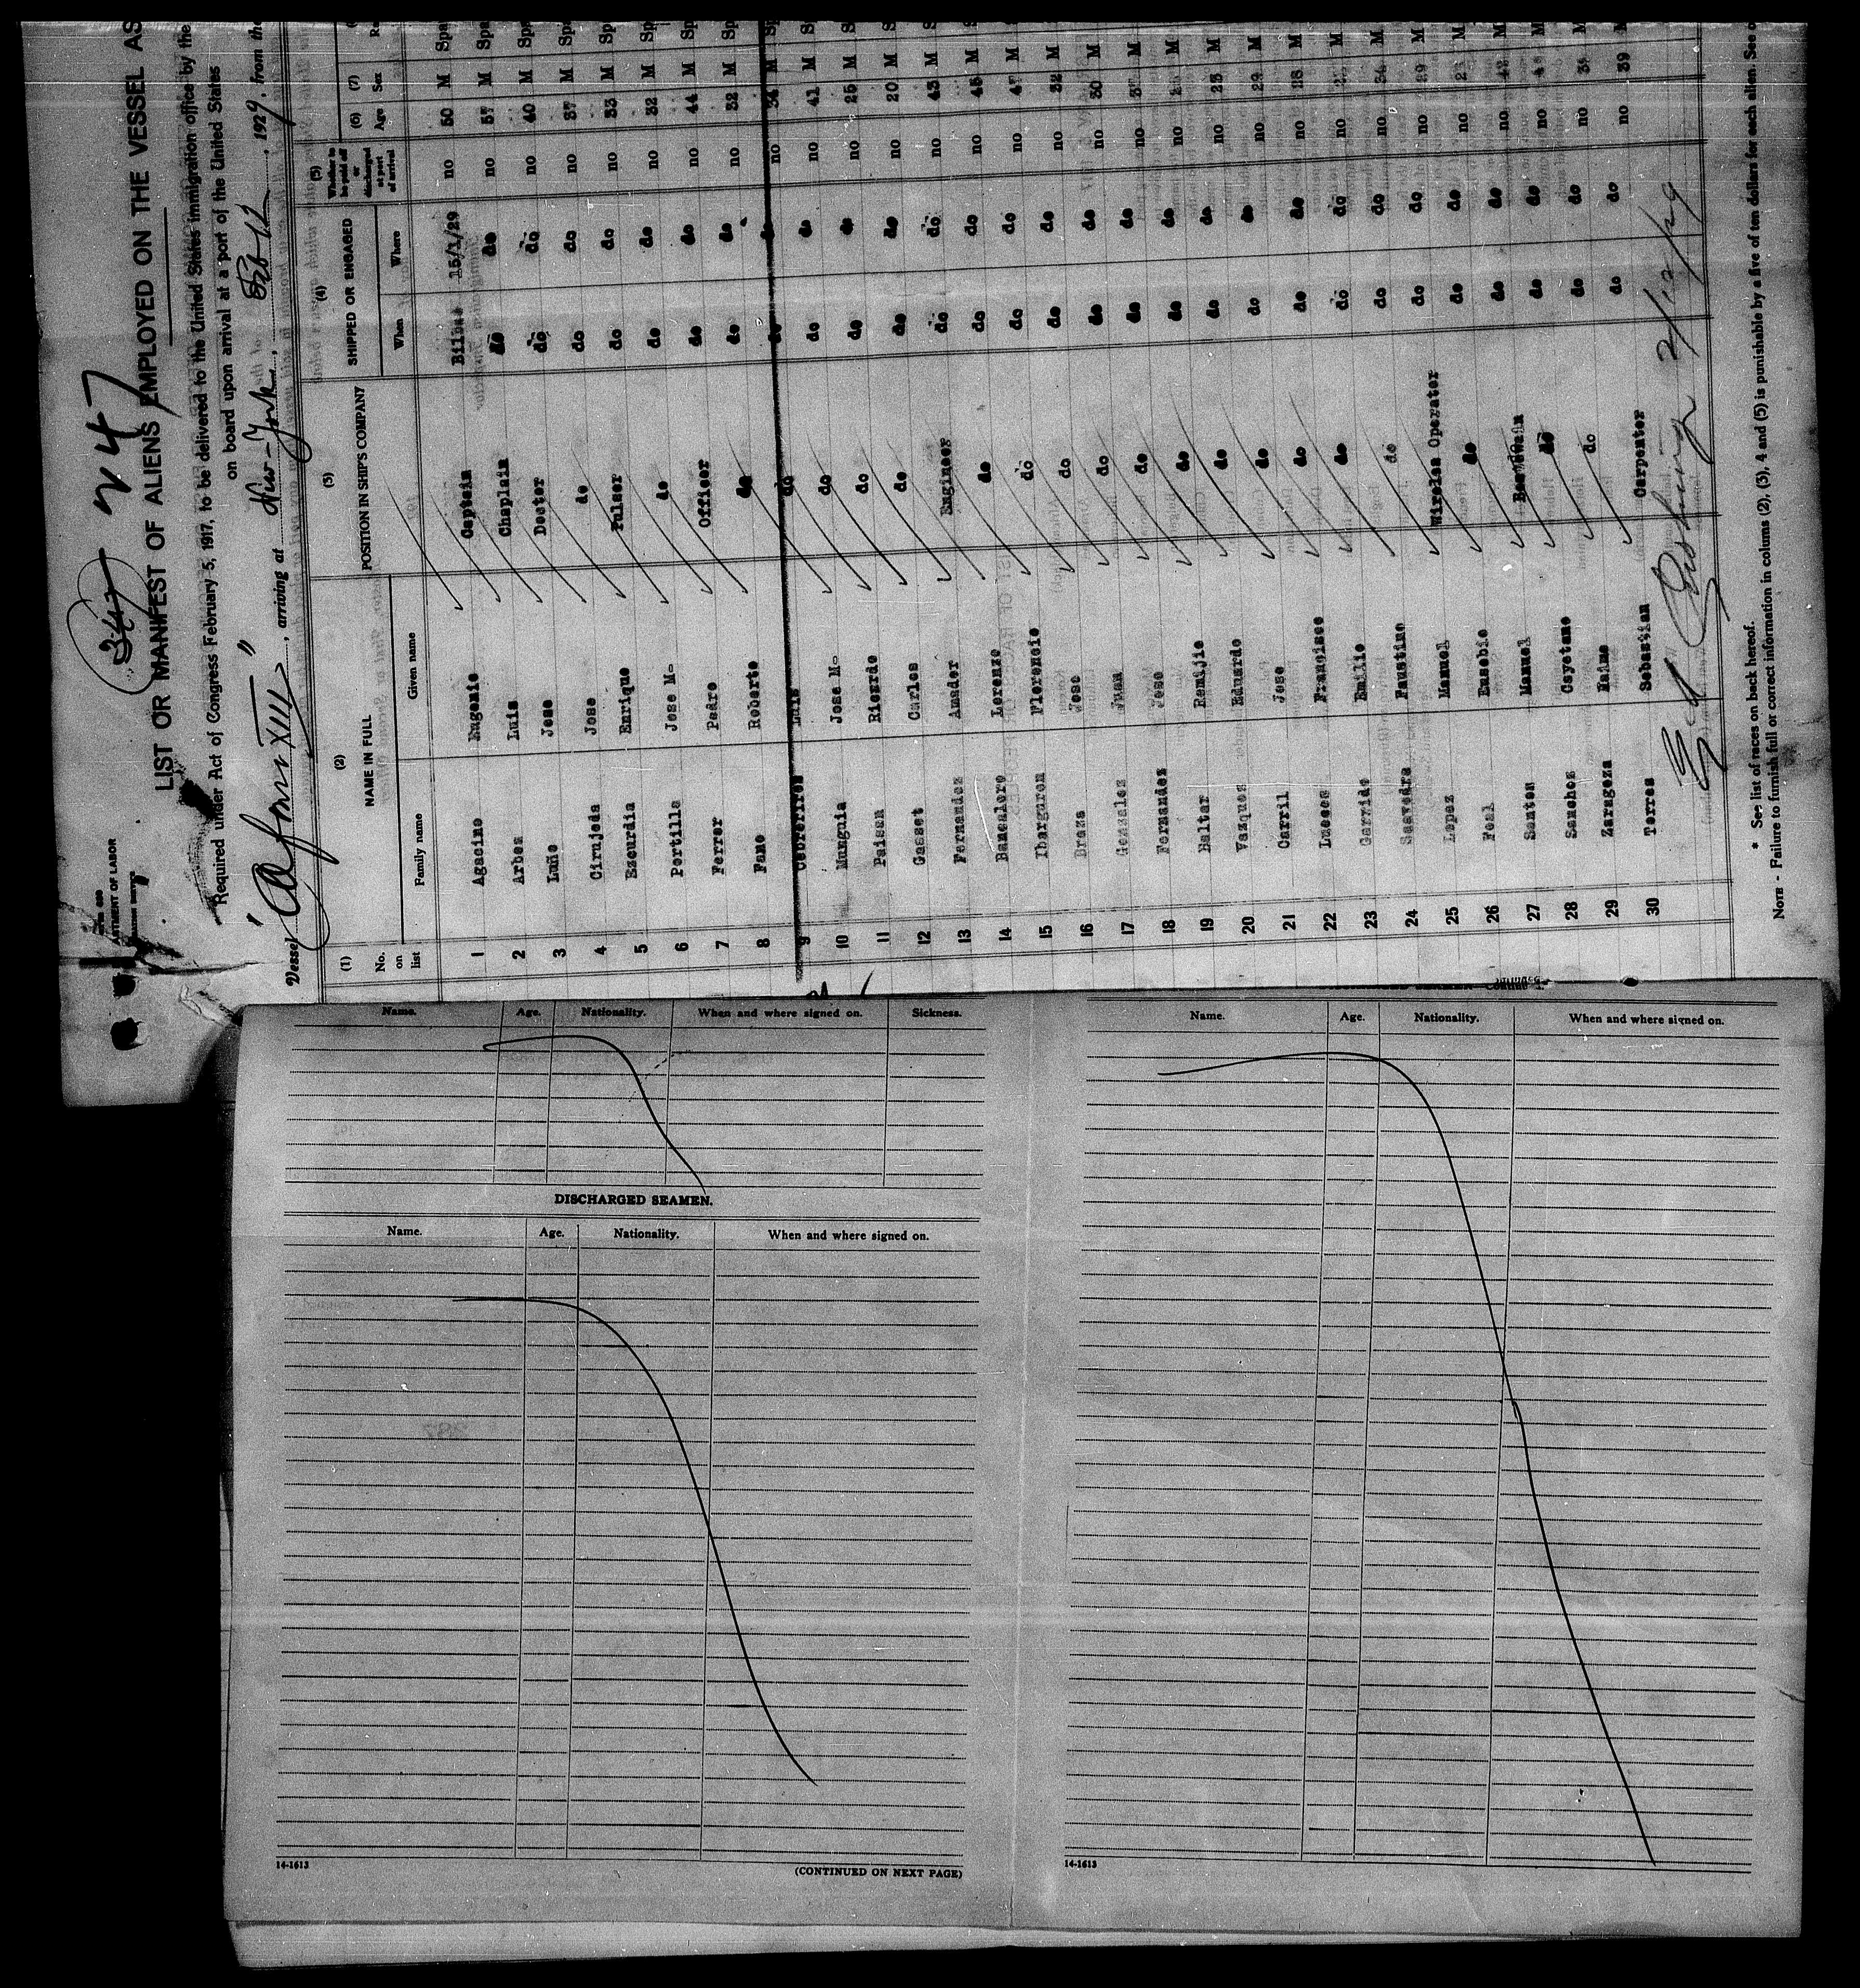 247
LIST OR MANIFEST OF ALIENS EMPLOYED ON THE VESSEL AS
ARTMENT OF LABOR
Required under Act of Congress February 5, 1917, to be delivered to the United States immigration office by the
on board upon arrival at a port of the United States
Vessel "Alfonso XIII", arriving at New-York, Feb 12, 1929, from the
(1) (2) (3) (4) (5) (6) (7)
No. on list NAME IN FULL POSITION IN SHIP'S COMPANY SHIPPED OR ENGAGED Whether to be paid off or discharged at port of arrival Age Sex
Family name Given name When Where
1 Agacino Eugenio Captain Bilbao 15/1/29 no 50 M Spa
2 Arbea Luis Chaplain do do no 57 M Spa
3 Luño Jose Docter do do no 40 M Spa
4 Cirujeda Jose do do do no 37 M Sp
5 Ezcurdia Enrique Pulser do do no 33 M Sp
6 Portilla Jose Mª do do do no 32 M Sp
7 Ferrer Pedro Officer do do no 44 M Sp
8 Fano Roberto do do do no 32 M Sp
9 Luis do do do no 34 M
10 Munguia Jose Mª do do do no 41 M S
11 Paissa Ricardo do do do no 25 M S
12 Gasset Carlos do do do no 20 M S
13 Fernandez Amador Engineer do do no 43 M S
14 Lorenzo do do do no 45 M
15 Ibarguren Florencio do do do no M
16 Braza Jose do do do no 32 M
17 Gonzalez Juan do do do no 30 M
18 Fernandez Jose do do do no M
19 Baltar Remijio do do do no M
20 Vazquez Eduardo do do do no 23 M
21 Carril Jose do do do no 29 M
22 Luaces Francisco do do do no 28 M
23 Garrido Emilio do do do no M
24 Saavedra Faustino do do do no 24 M
25 Lopez Manuel Wireles Operator do do no 29 M
26 Feal Eusebio do do do no M
27 Santos Manuel Boatswain do do no 42 M
28 Sanchez Cayetano do do do no M
29 Zaragoza Jaime do do do no M
30 Torres Sebastian Carpenter do do no 39 M
2/12/29
* See list of races on back hereof.
NOTE - Failure to furnish full or correct information in colums (2), (3), 4 and (5) is punishable by a five of ten dollars for each alien. See o
Name. Age. Nationality. When and where signed on. Sickness.
DISCHARGED SEAMEN.
Name. Age. Nationality. When and where signed on.
14-1613 (CONTINUED ON NEXT PAGE)
Name. Age. Nationality. When and where signed on.
14-1613